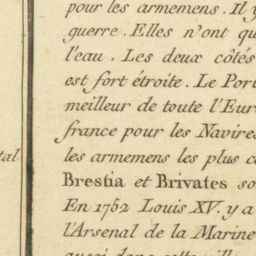 pour les armemens. Il y
guerre. Elles n'ont qu
l'eau. Les deux côtés
est fort étroite. Le Por
meilleur de toute l'Eur
france pour les Navires
tal
les armemens les plus c
Brestia et Brivates so
En 1752 Louis XV. y a
l'Arsenal de la Marine